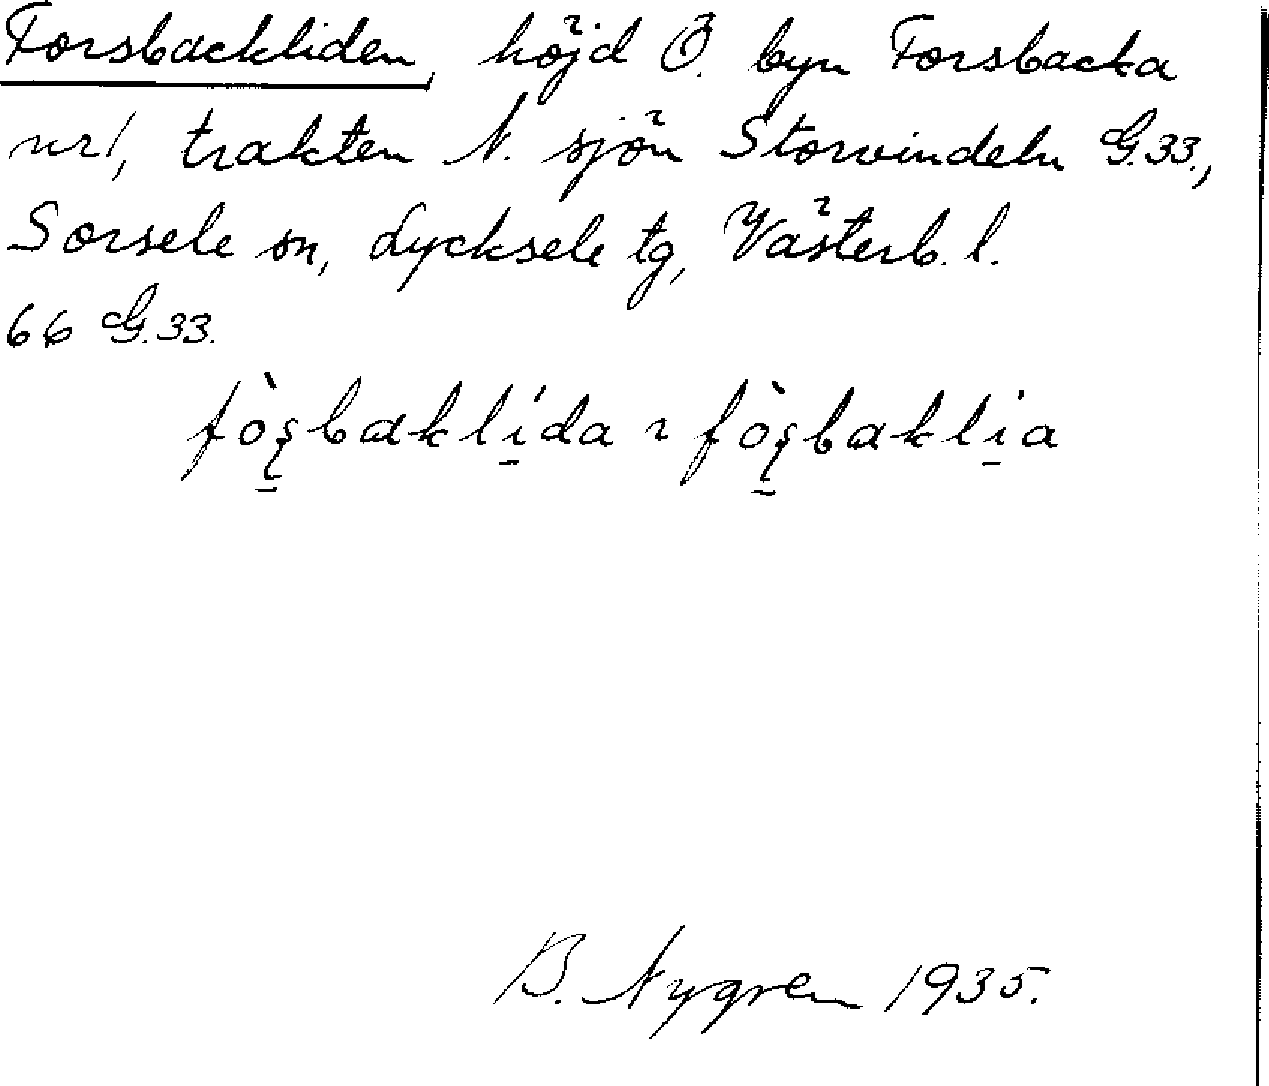 Forsbackliden, höjd Ö. byn Forsbacka
nr 1, trakten N. sjön Storvindeln G.33.,
Sorsele sn, Lycksele tg, Västerb. l.
66 G.33.
B. Nygren 1935.